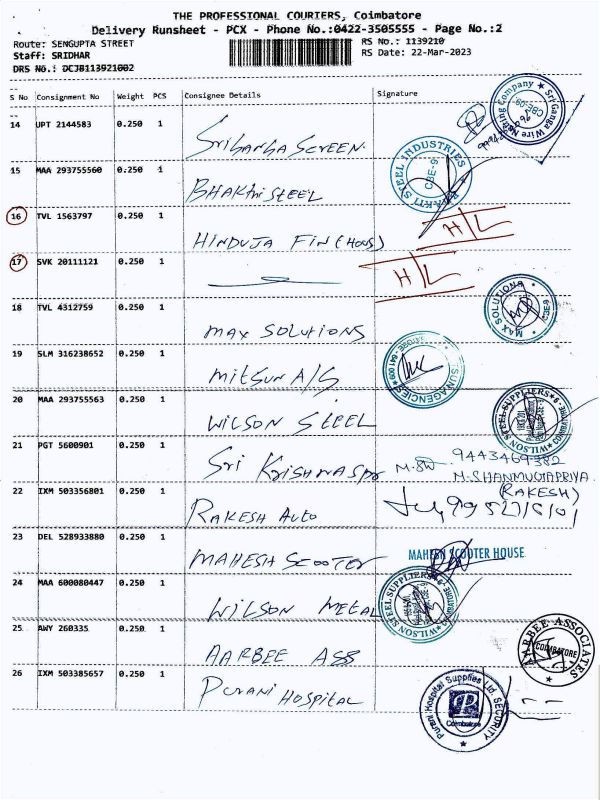 THE PROFESSIONAL COURIERS, Coimbatore
Delivery Runsheet - PCX - Phone No.:0422-3505555 - Page No.:2
Route: SENGUPTA STREET
RS No.: 1139210
Staff: SRIDHAR
RS Date: 22-Mar-2023
DRS No.: DCJB113921002
S No Consignment No Weight PCS Consignee Details Signature
14 UPT 2144583 0.250 1 Sri Ganga SCREEN
Sri Ganga Wire Netting Company CBE-09
15 MAA 293755560 0.250 1 BHAKTHI STEEL
BHAKTI STEEL INDUSTRIES CBE-9
16 TVL 1563797 0.250 1 HINDUJA FIN (HOUS) H/L
17 SVK 20111121 0.250 1 H/L
18 TVL 4312759 0.250 1 MAX SOLUTIONS
MAX SOLUTIONS CBE-9
19 SLM 316238652 0.250 1 MITSUN A/G
SUN AGENCIES
20 MAA 293755563 0.250 1 WILSON STEEL
WILSON STEEL SUPPLIERS
21 PGT 5600901 0.250 1 Sri KRISHNA
9443469382
M.SHANMUGAPRIYA
22 IXM 503356801 0.250 1 RAKESH AUTO
(RAKESH)
23 DEL 528933880 0.250 1 MAHESH SCOOTER
MAHESH SCOOTER HOUSE
24 MAA 600080447 0.250 1 WILSON METAL
WILSON STEEL SUPPLIERS
25 AWY 260335 0.250 1 AARBEE ASS
AARBEE ASSOCIATES COIMBATORE
26 IXM 503385657 0.250 1 PURANI HOSPITAL
Purani Hospital Supplies Ltd. SECURITY
Coimbatore